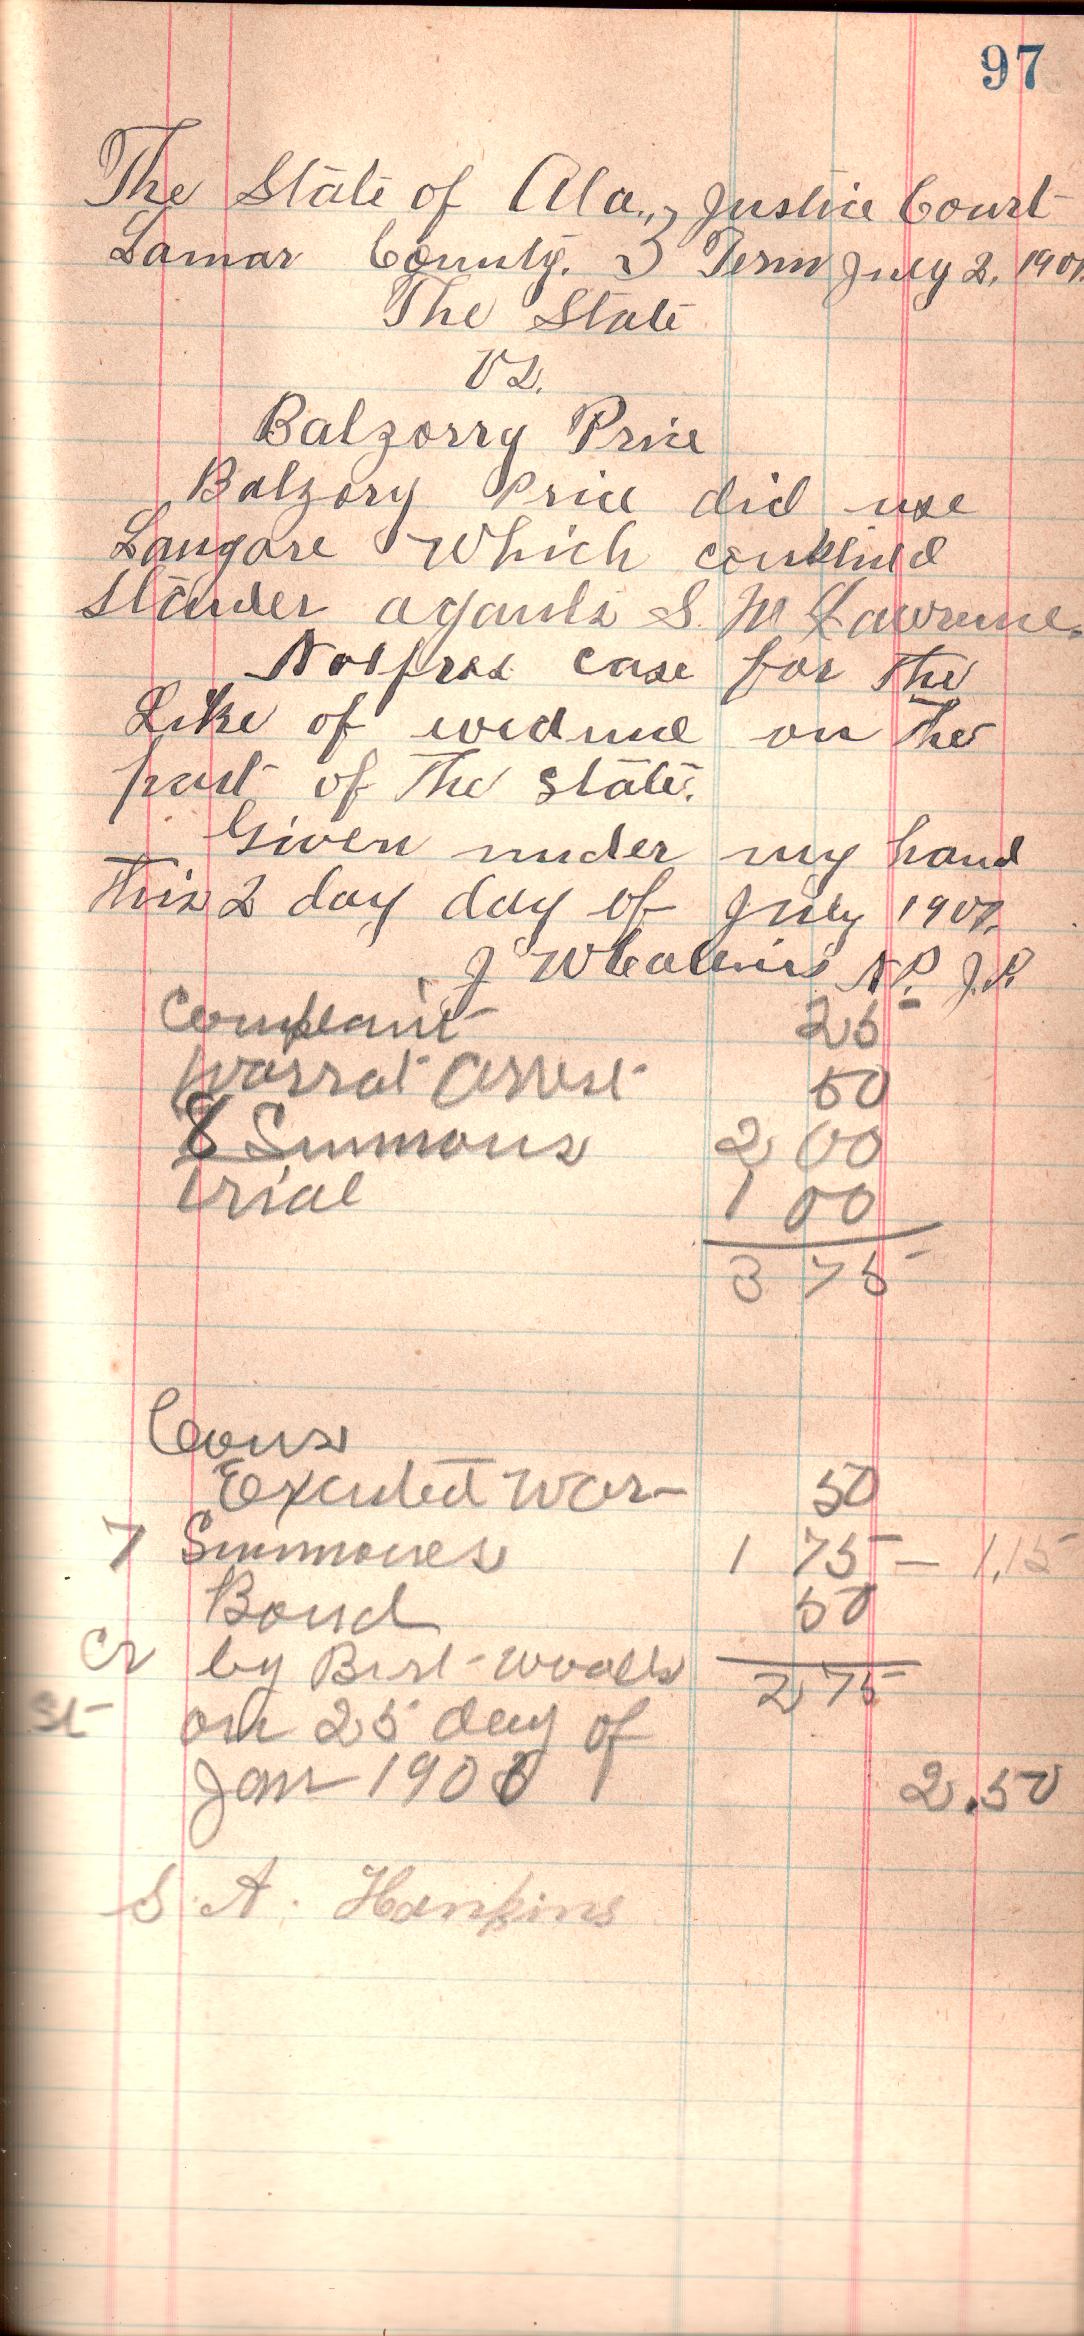 97
The State of Ala., } Justice Court
Lamar County. } Term July 2, 1907.
The State
vs.
Balzorry Price
Balzory Price did use
Langare Which
Slander aganls S. M Lawrence.
Nolpros case for the
Like of on the
part of The state.
Given under my hand
this 2 day day of July 1907.
J W N.P. J.P.
Complaint 25
warrat arrest 50
8 Summons 2 00
trial 1 00
3 75
Cons
Executed War 50
7 Summones 1 75 — 1.15
Bond 50
Cr by Birt Woods 2 75
st on 25 day of
Jan 1908 2.50
S. A. Hankins